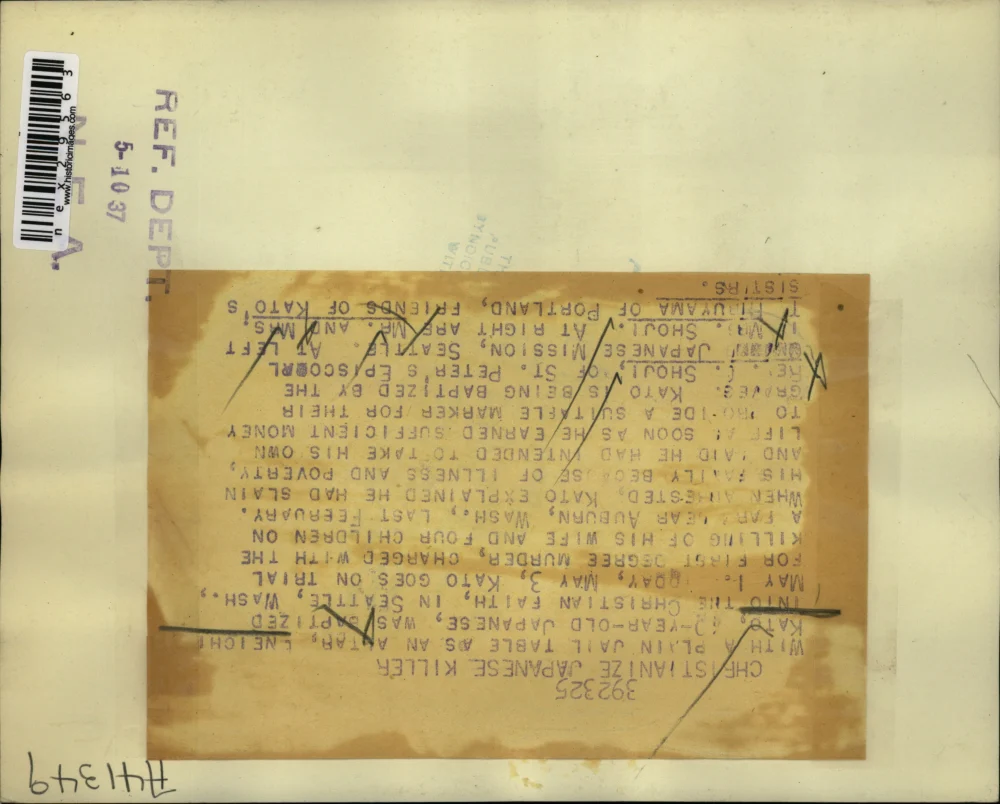 392325
CHRISTIANIZE JAPANESE KILLER
WITH A PLAIN JAIL TABLE AS AN ALTAR,
KATO, -YEAR-OLD JAPANESE, WAS BAPTIZED
INTO THE CHRISTIAN FAITH, IN SEATTLE, WASH.,
MAY 1. MAY 3, KATO GOES ON TRIAL
FOR FIRST DEGREE MURDER, CHARGED WITH THE
KILLING OF HIS WIFE AND FOUR CHILDREN ON
A FARM NEAR AUBURN, WASH., LAST FEBRUARY.
WHEN ARRESTED, KATO EXPLAINED HE HAD SLAIN
HIS FAMILY BECAUSE OF ILLNESS AND POVERTY,
AND SAID HE HAD INTENDED TO TAKE HIS OWN
LIFE AS SOON AS HE EARNED SUFFICIENT MONEY
TO PROVIDE A SUITABLE MARKER FOR THEIR
GRAVES. KATO IS BEING BAPTIZED BY THE
REV. SHOJI, OF ST. PETER'S EPISCOPAL
JAPANESE MISSION, SEATTLE. AT LEFT
MRS. SHOJI. AT RIGHT ARE MR. AND MRS.
OF PORTLAND, FRIENDS OF KATO'S
SISTERS.
REF. DEPT.
5-10 37
N. E. A.
nex29563
www.historicimages.com
A41349